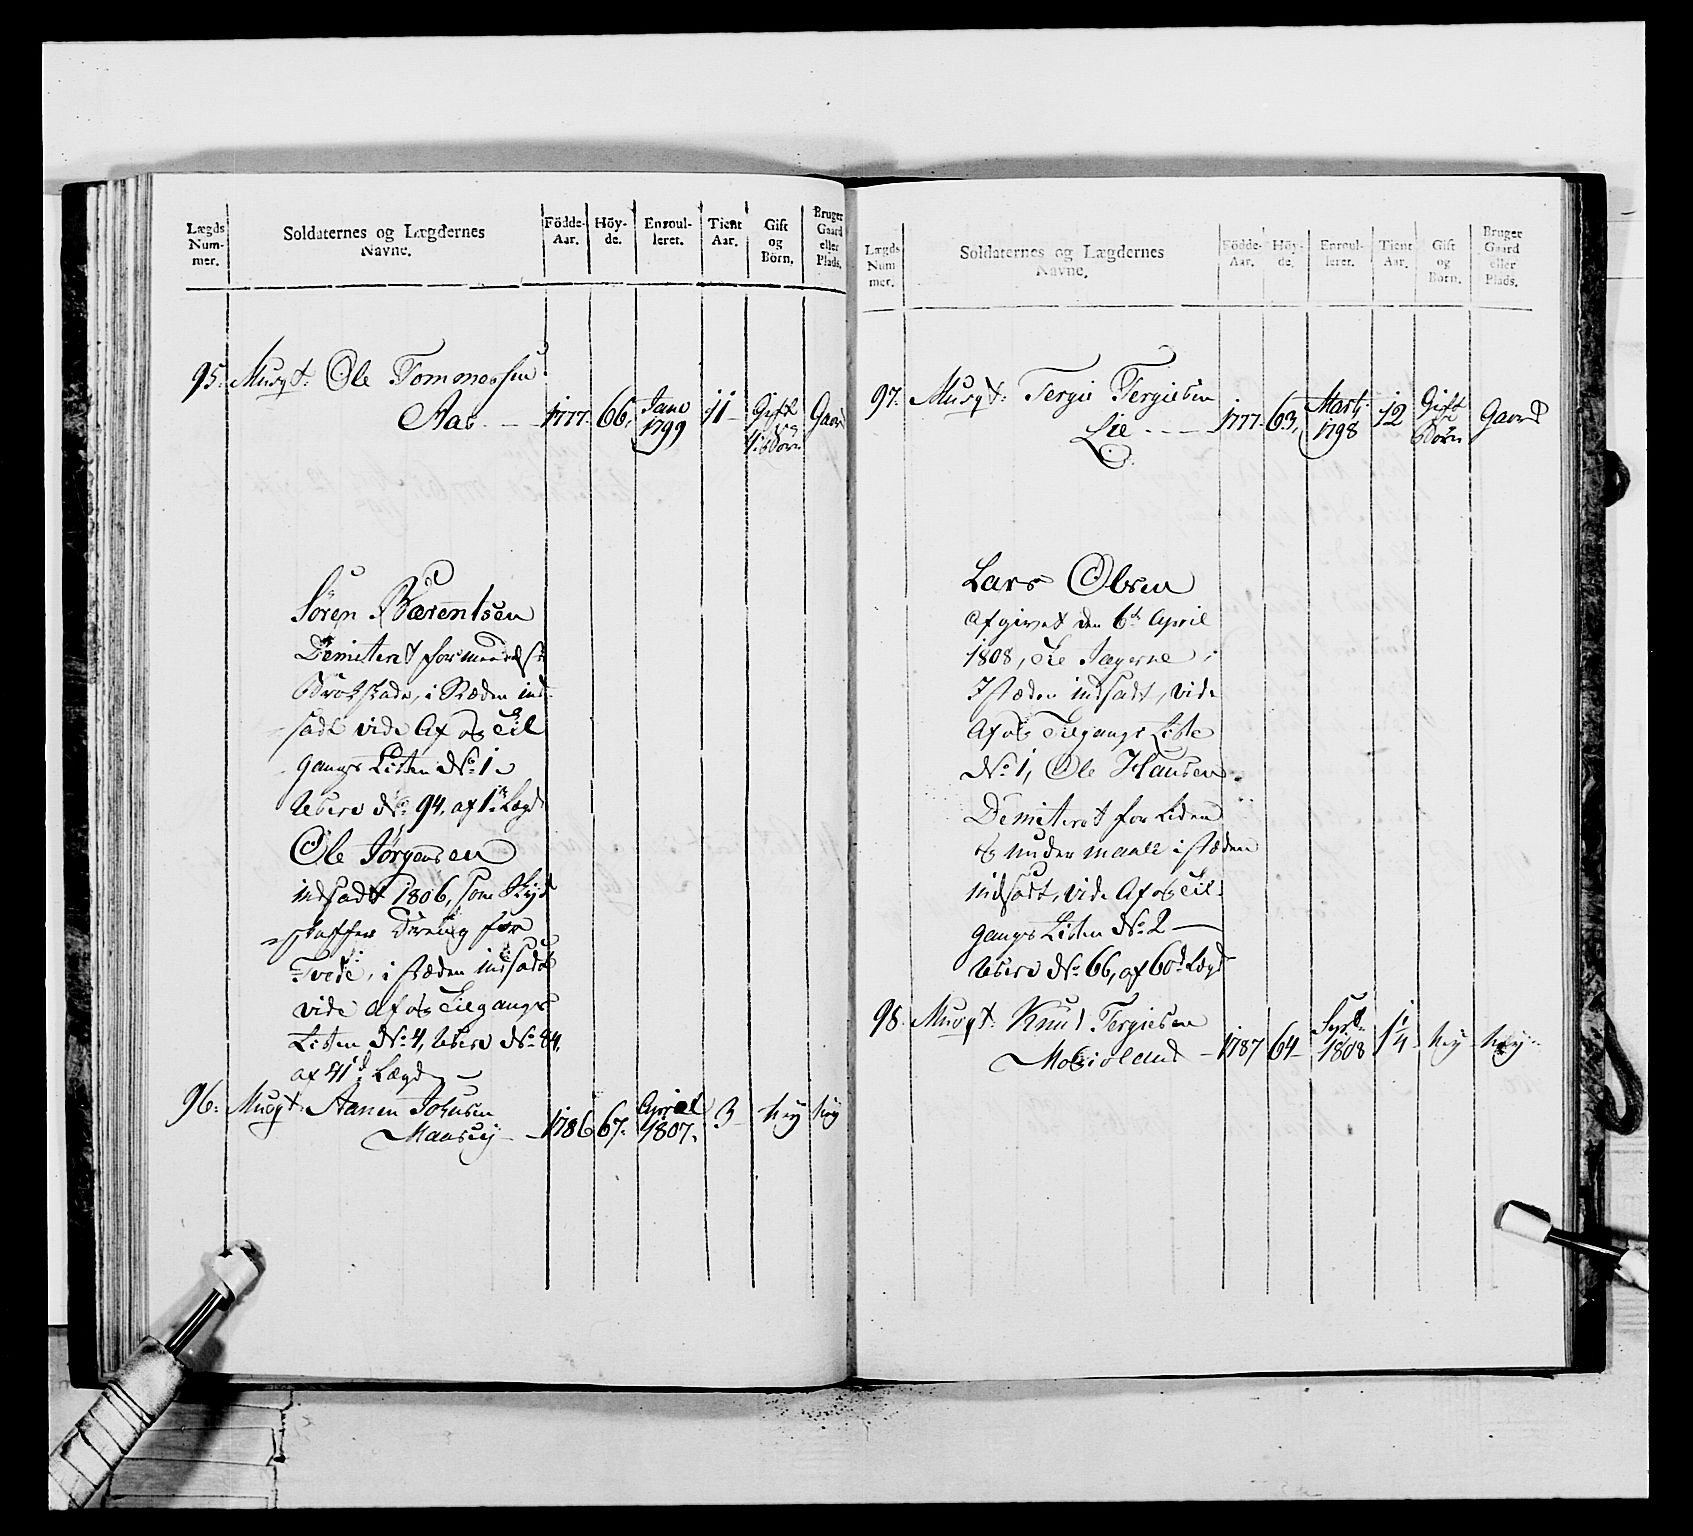 Lægds Num- mer.
Soldaternes og Lægdernes Navne.
Födde- Aar.
Höy- de.
Enroul- leret.
Tient Aar.
Gift og Börn.
Bruger Gaard eller Plads.
95. Musqt: Ole Tommessen
Aas 1777. 66. Janv 1799 11 Gift 1. Börn Gaard
Sören Bærentsen
Demiteret for
Brökskade, i Stæden ind-
sadt vide Af og Til
gangs Listen No 1
Ubero No 94, af 1te Lægd
Ole Jörgensen
indsadt 1806, som Skyds
skaffer Dreng for
Tvede, i stæden indsadt
vide Af og Tilgangs
Listen No 4, Ubero No 84,
af 41d Lægd
96. Musqt. Aanen Johnsen
1786 67. April 1807. 3 Ney Ney
Lægds Num mer.
Soldaternes og Lægdernes Navne.
Födde- Aar.
Höy- de.
Enroul- leret.
Tient Aar.
Gift og Börn.
Bruger Gaard eller Plads.
97. Musqt: Tergie Tergiesen
Lie 1777. 63, Marti 1798 12 Gift Börn Gaard
Lars Olsen
Afgivet den 6te April
1808, til Jægerne,
I stæden indsadt, vide
Af og Tilgangs Liste
No 1, Ole Hansen
Demiteret for Liden
og under maale i stæden
indsadt, vide Af og Til-
gangs Listen No 2
Ubero No 66, af 60d Lægd
98. Musqt. Knud Tergiesen
Mosioland 1787 64 1808 1 1/4 Ney Ney